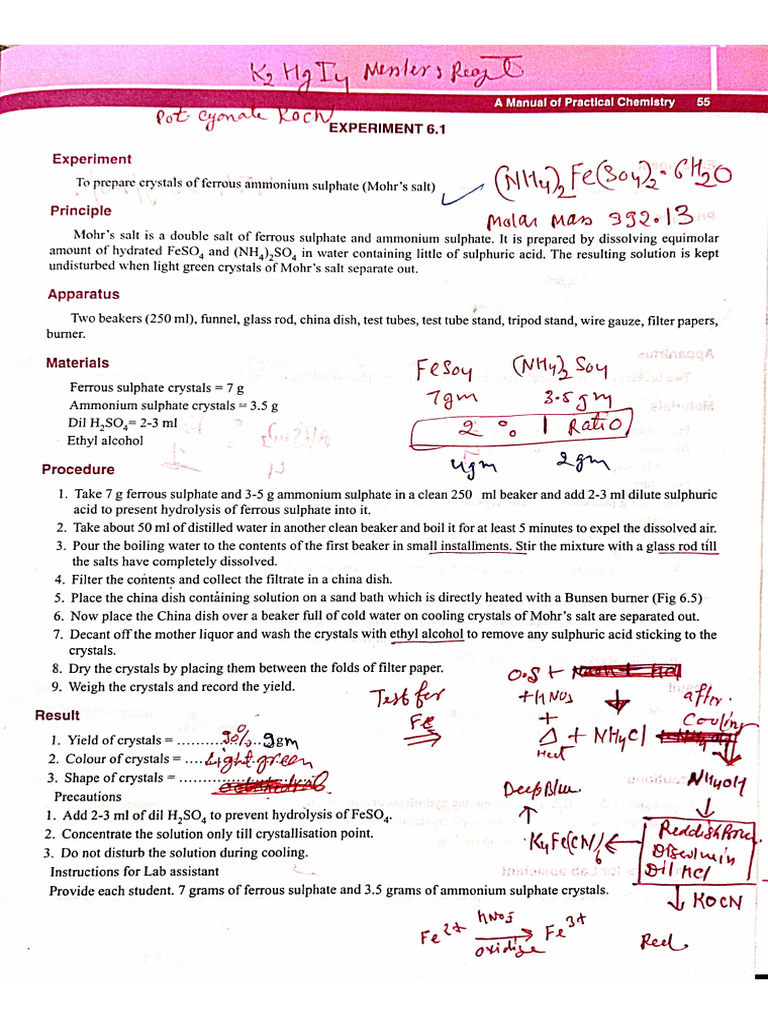 K2 HgI4 Messlers Reagt
A Manual of Practical Chemistry 55
Pot. Cyonate KOCN
EXPERIMENT 6.1
Experiment
To prepare crystals of ferrous ammonium sulphate (Mohr's salt)
(NH4)2 Fe(SO4)2 · 6H2O
Principle
Molar Mass 392.13
Mohr's salt is a double salt of ferrous sulphate and ammonium sulphate. It is prepared by dissolving equimolar
amount of hydrated FeSO4 and (NH4)2SO4 in water containing little of sulphuric acid. The resulting solution is kept
undisturbed when light green crystals of Mohr's salt separate out.
Apparatus
Two beakers (250 ml), funnel, glass rod, china dish, test tubes, test tube stand, tripod stand, wire gauze, filter papers,
burner.
Materials
FeSO4 (NH4)2 SO4
Ferrous sulphate crystals = 7 g
7gm 3.5gm
Ammonium sulphate crystals = 3.5 g
Dil H2SO4= 2-3 ml
2 % 1 Ratio
Ethyl alcohol
4gm 2gm
Procedure
1. Take 7 g ferrous sulphate and 3-5 g ammonium sulphate in a clean 250 ml beaker and add 2-3 ml dilute sulphuric
acid to present hydrolysis of ferrous sulphate into it.
2. Take about 50 ml of distilled water in another clean beaker and boil it for at least 5 minutes to expel the dissolved air.
3. Pour the boiling water to the contents of the first beaker in small installments. Stir the mixture with a glass rod till
the salts have completely dissolved.
4. Filter the contents and collect the filtrate in a china dish.
5. Place the china dish containing solution on a sand bath which is directly heated with a Bunsen burner (Fig 6.5)
6. Now place the China dish over a beaker full of cold water on cooling crystals of Mohr's salt are separated out.
7. Decant off the mother liquor and wash the crystals with ethyl alcohol to remove any sulphuric acid sticking to the
crystals.
8. Dry the crystals by placing them between the folds of filter paper.
9. Weigh the crystals and record the yield.
O.S +
Test for
Fe
+HNO3
+
Δ + NH4Cl
Heat
after
Cooling
NH4OH
Result
1. Yield of crystals = ............90%...9gm
2. Colour of crystals = ....Light green
3. Shape of crystals = ............................
Precautions
Deep Blue
1. Add 2-3 ml of dil H2SO4 to prevent hydrolysis of FeSO4.
2. Concentrate the solution only till crystallisation point.
K4Fe(CN)6
Dil HCl
3. Do not disturb the solution during cooling.
Instructions for Lab assistant
Provide each student. 7 grams of ferrous sulphate and 3.5 grams of ammonium sulphate crystals.
KOCN
Fe2+ HNO3 Fe3+
oxidize
Red